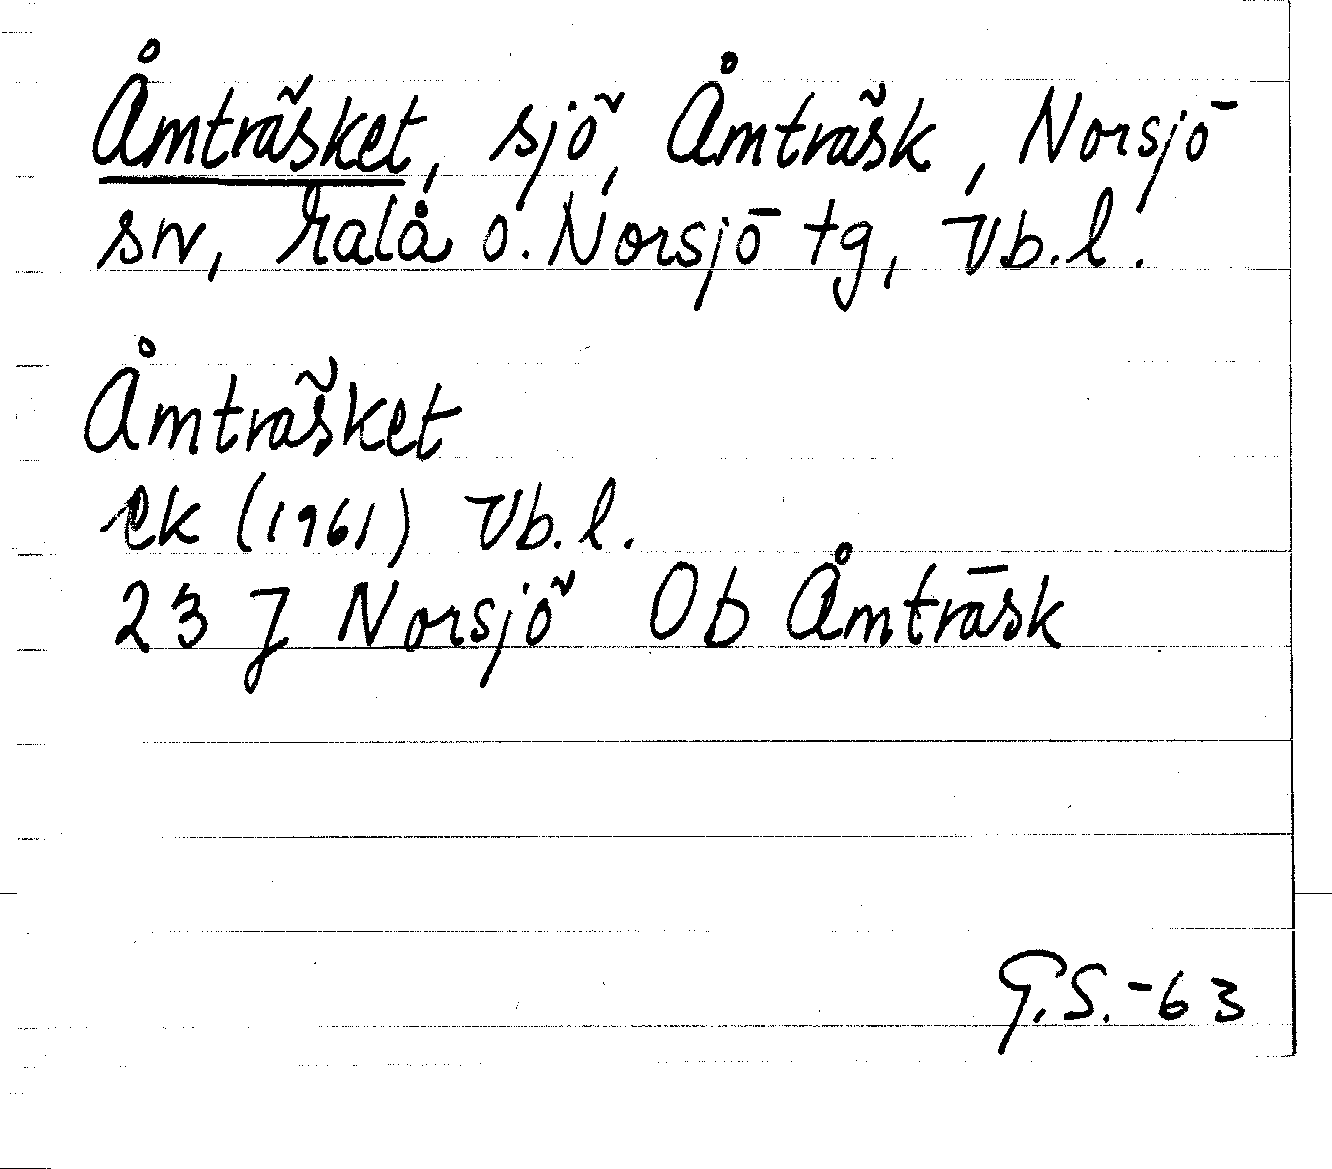 Åmträsket, sjö, Åmträsk, Norsjö
sn, Malå o. Norsjö tg, Vb.l.
Åmträsket
ek (1961) Vb.l.
23 J Norsjö Ob Åmträsk
G.S.-63